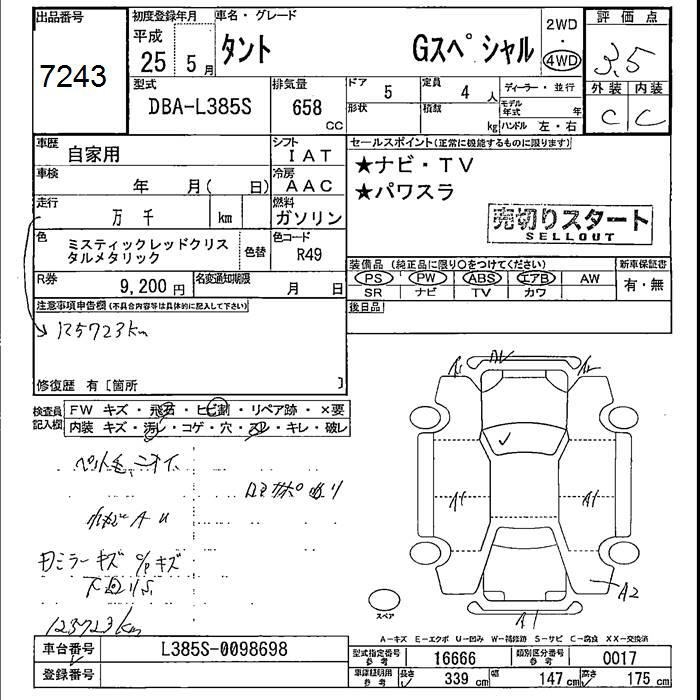 出品番号
7243
初度登録年月
平成
25 5月
車名・グレード
タント Gスペシャル
2WD
4WD
評価点
3.5
外装 内装
C C
型式
DBA-L385S
排気量
658
CC
ドア
5
定員
4 人
形状
積載
kg
ディーラー・並行
モデル年式 年
ハンドル 左・右
車歴
自家用
シフト
IAT
車検
年 月( 日)
冷房
AAC
走行
万 千 km
燃料
ガソリン
色
ミスティックレッドクリス
タルメタリック
色替
色コード
R49
R券
9,200円
名変通知期限
月 日
セールスポイント(正常に機能するものに限ります)
★ナビ・TV
★パワスラ
売切りスタート
SELLOUT
装備品(純正品に限り〇をつけてください)
新車保証書
PS PW ABS エアB AW
有・無
SR ナビ TV カワ
後日品
注意事項申告欄(不具合内容等は具体的に記入して下さい)
125723km
修復歴 有〔箇所 〕
検査員記入欄
FW キズ・飛石・ヒビ割・リペア跡・×要
内装 キズ・汚レ・コゲ・穴・スレ・キレ・破レ
キズ
下回りS
125723km
A1
A1
A2
A1
スペア
A-キズ E-エクボ U-凹み W-補修跡 S-サビ C-腐食 XX-交換済
車台番号
L385S-0098698
登録番号
型式指定番号
参考
16666
類別区分番号
参考
0017
車庫証明用
参考
長さ 339 cm
幅 147 cm
高さ 175 cm